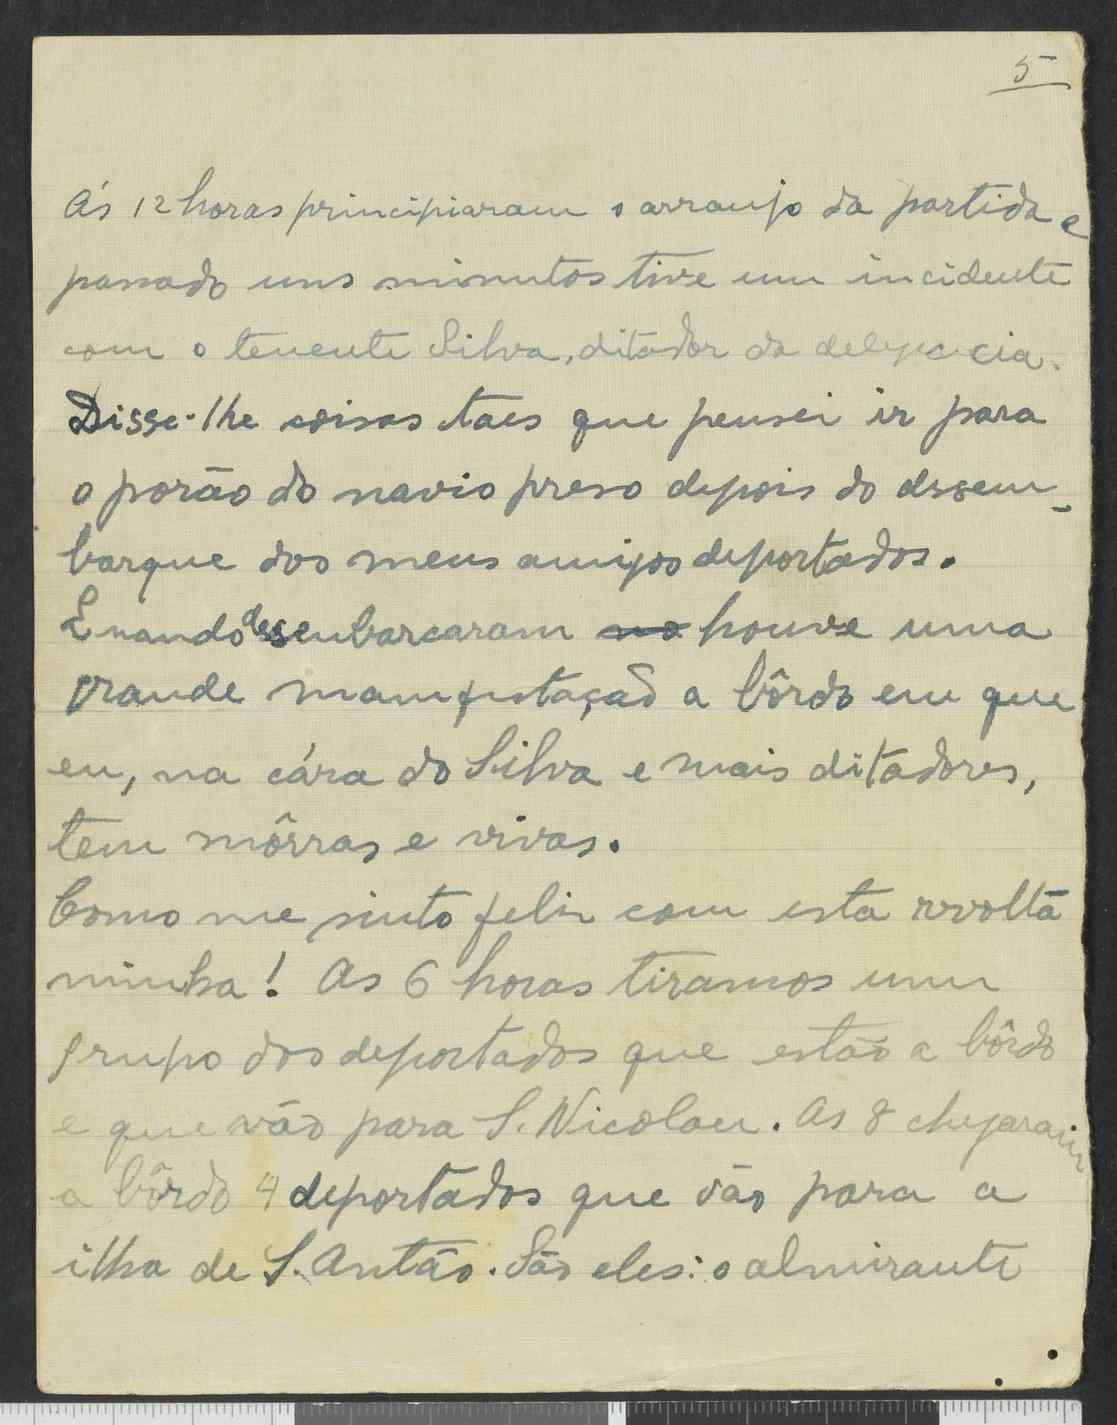 5
Ás 12 horas principiaram o arranjo da partida e
passado uns minutos tive um incidente
com o tenente Silva, ditador da delegacia.
Disse-lhe coisas taes que pensei ir para
o porão do navio preso depois do desem-
barque dos meus amigos deportados.
Quando desembarcaram no houve uma
grande manifestação a bôrdo em que
eu, na cára do Silva e mais ditadores,
tem môrras e vivas.
Como me sinto feliz com esta revolta
minha! As 6 horas tiramos um
grupo dos deportados que estão a bôrdo
e que vão para S. Nicolau. As 8 chegaram
a bôrdo 4 deportados que vão para a
ilha de S. Antão. São eles: o almirante